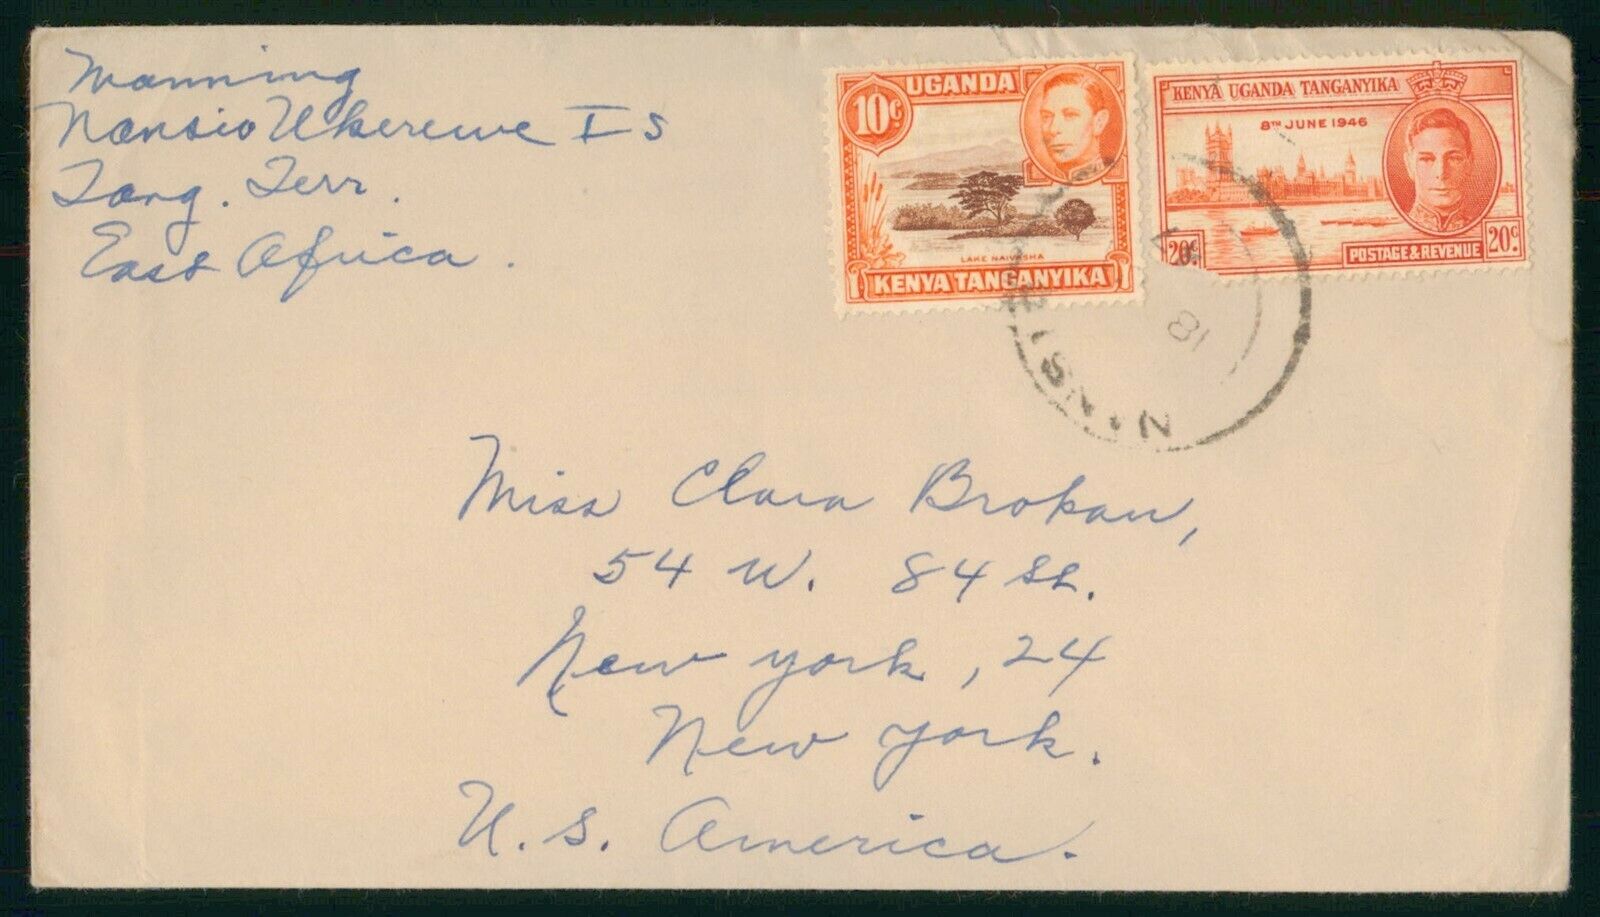 Manning
Nansio Ukerewe Is
Tang. Terr.
East Africa.
UGANDA
10c
LAKE NAIVASHA
KENYA TANGANYIKA
KENYA UGANDA TANGANYIKA
8TH JUNE 1946
20c.
POSTAGE & REVENUE
20c.
NANSI
18
Miss Clara Brokaw,
54 W. 84 St.
New York, 24
New York.
U.S. America.